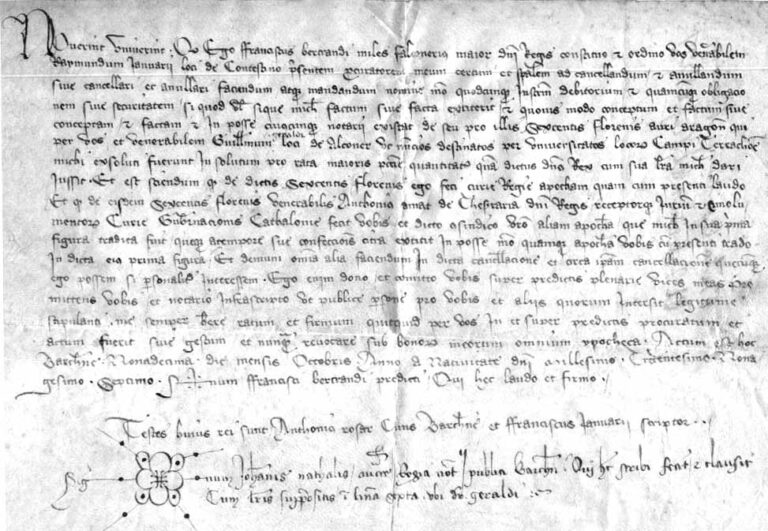 Noverint Universi Quod Ego ffranciscus bertrandi miles falconerius maior dni Regis constituo et ordino vos venerabilem
Raymundum Januarii loci de presentem procuratorem meum certum et spalem ad cancellandum et anullandum
sive cancellari et anullari faciendum atqz mandandum nomine meo quodcunqz Instrm debitorium et quamcunqz obligacio
nem sive securitatem si quod vel si que michi factum sive facta extiterit et quovis modo conceptum et factum sive
conceptam et factam et In posse cuiuscunqz notarii existat de seu pro illis Sexcentis florenis auri aragon qui
per vos et venerabilem Guillmum loci de Alcover ut nuncios destinatos per universitates locorum Campi Terrachone
michi exsoluti fuerunt In solutum pro rata maioris pecunie quantitatis quam dictus dns Rex cum sua lra michi dari
Jussit. Et est sciendum qz de dictis Sexcentis florenis ego feci curie Regie apocham quam cum presenti laudo
Et qz de eisdem Sexcentis florenis venerabilis Anthonius amat de Thesoraria dni Regis receptorqz et emolu
mentorum Curie Gubernacionis Cathalonie fecit vobis et dicto sindico vro aliam apocham que michi In sua prima
figura tradita fuit queqz a tempore sue confeccionis citra extitit In posse meo quamqz apocham vobis cum presenti trado
In dicta eius prima figura. Et demum omnia alia faciendum In dicta cancellacione et circa ipsam cancellacionem quecumqz
ego possem si personaliter Interessem. Ego enim dono et comitto vobis super predictis plenarie vices meas Pro
mittens vobis et notario Infrascripto ut publice persone pro vobis et aliis quorum Intersit legitime
stipulanti me semper habere ratum et firmum quicquid per vos In et super predictis procuratum et
actum fuerit sive gestum et nunqz revocare sub bonorum meorum omnium ypotheca. Actum est hoc
Barchne. Nonadecima die mensis Octobris Anno a Nativitate dni Millesimo. Trecentesimo. Nona
gesimo. Septimo. Sig num ffrancisci bertrandi predicti. Qui hec laudo et firmo.
Testes huius rei sunt Anthonius roser Civis Barchne et ffranciscus Januarii scriptor
Sig num Johannis nathalis aucte Regia not publici Barchn. Qui hec scribi fecit et clausit
Cum lris supposits i linea septa. ubi dr. geraldi.